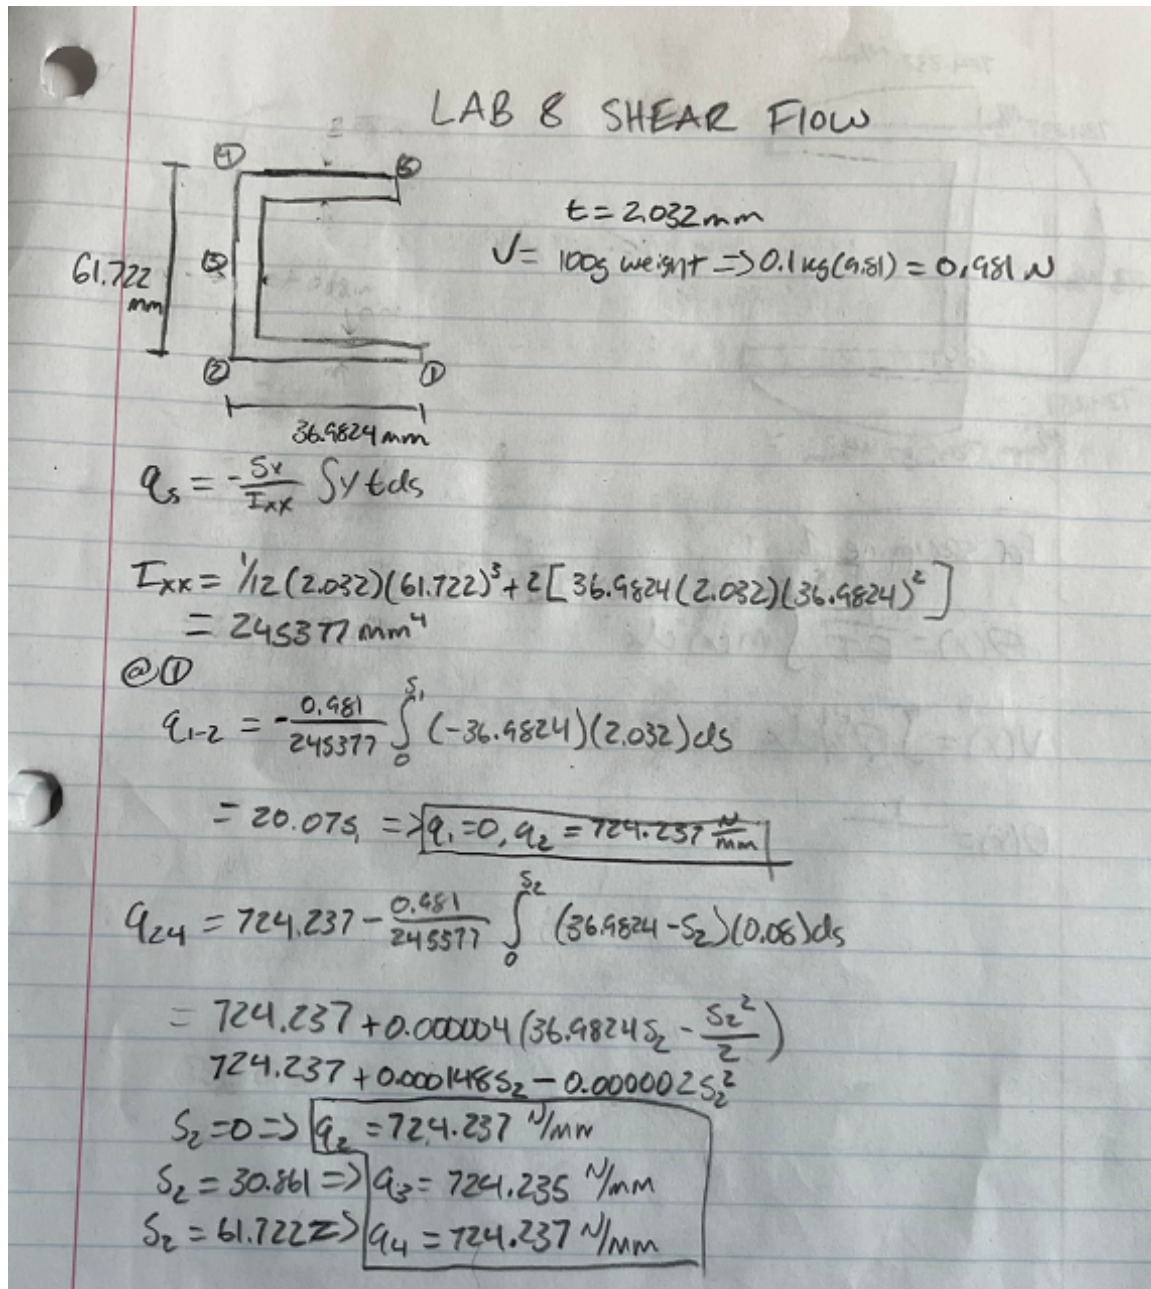 LAB 8 SHEAR FLOW
④ ⑤
t = 2.032mm
V = 100g weight => 0.1kg(9.81) = 0.981 N
61.722 mm
③
② ①
36.9824mm
qs = -Sy/Ixx ∫y t ds
Ixx = 1/12 (2.032)(61.722)³ + 2[36.9824(2.032)(36.9824)²]
= 245377 mm⁴
@①
q1-2 = -0.981/245377 ∫₀^S₁ (-36.9824)(2.032)ds
= 20.07S, => q₁=0, q₂ = 724.237 N/mm
q24 = 724.237 - 0.981/245577 ∫₀^S₂ (36.9824-S₂)(0.08)ds
= 724.237 + 0.000004(36.9824S₂ - S₂²/2)
724.237 + 0.000148S₂ - 0.000002S₂²
S₂=0 => q₂ = 724.237 N/mm
S₂ = 30.861 => q3 = 724.235 N/mm
S₂ = 61.722 => q4 = 724.237 N/mm